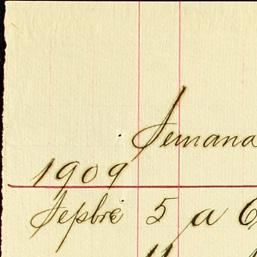 Semana
1909
Sepbre 5 a 6